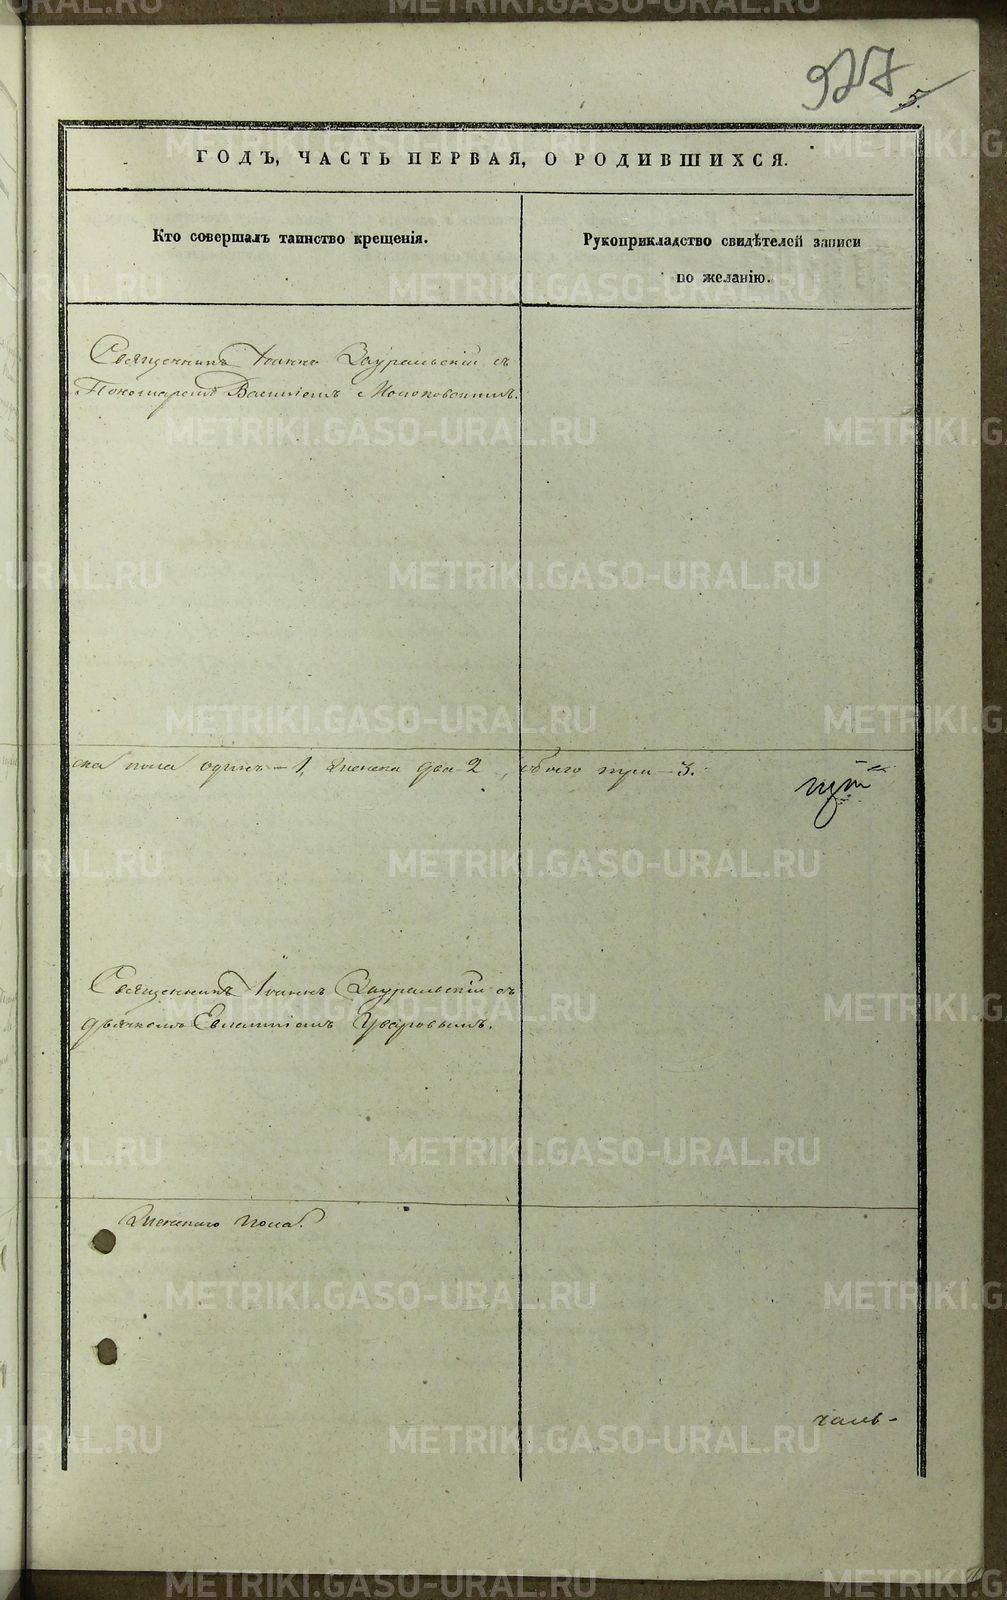 927
5.
ГОДЪ, ЧАСТЬ ПЕРВАЯ, О РОДИВШИХСЯ.
Кто совершалъ таинство крещенія.
Рукоприкладство свидѣтелей записи
по желанію.
Священникъ Іоаннъ Зауральскій съ
Пономаремъ Василіемъ
ска пола одинъ - 1, женска два - 2, обоего три - 3.
Священникъ Іоаннъ Зауральскій съ
дьячкомъ Евлампіемъ Уваровымъ.
Женскаго пола.
METRIKI.GASO-URAL.RU